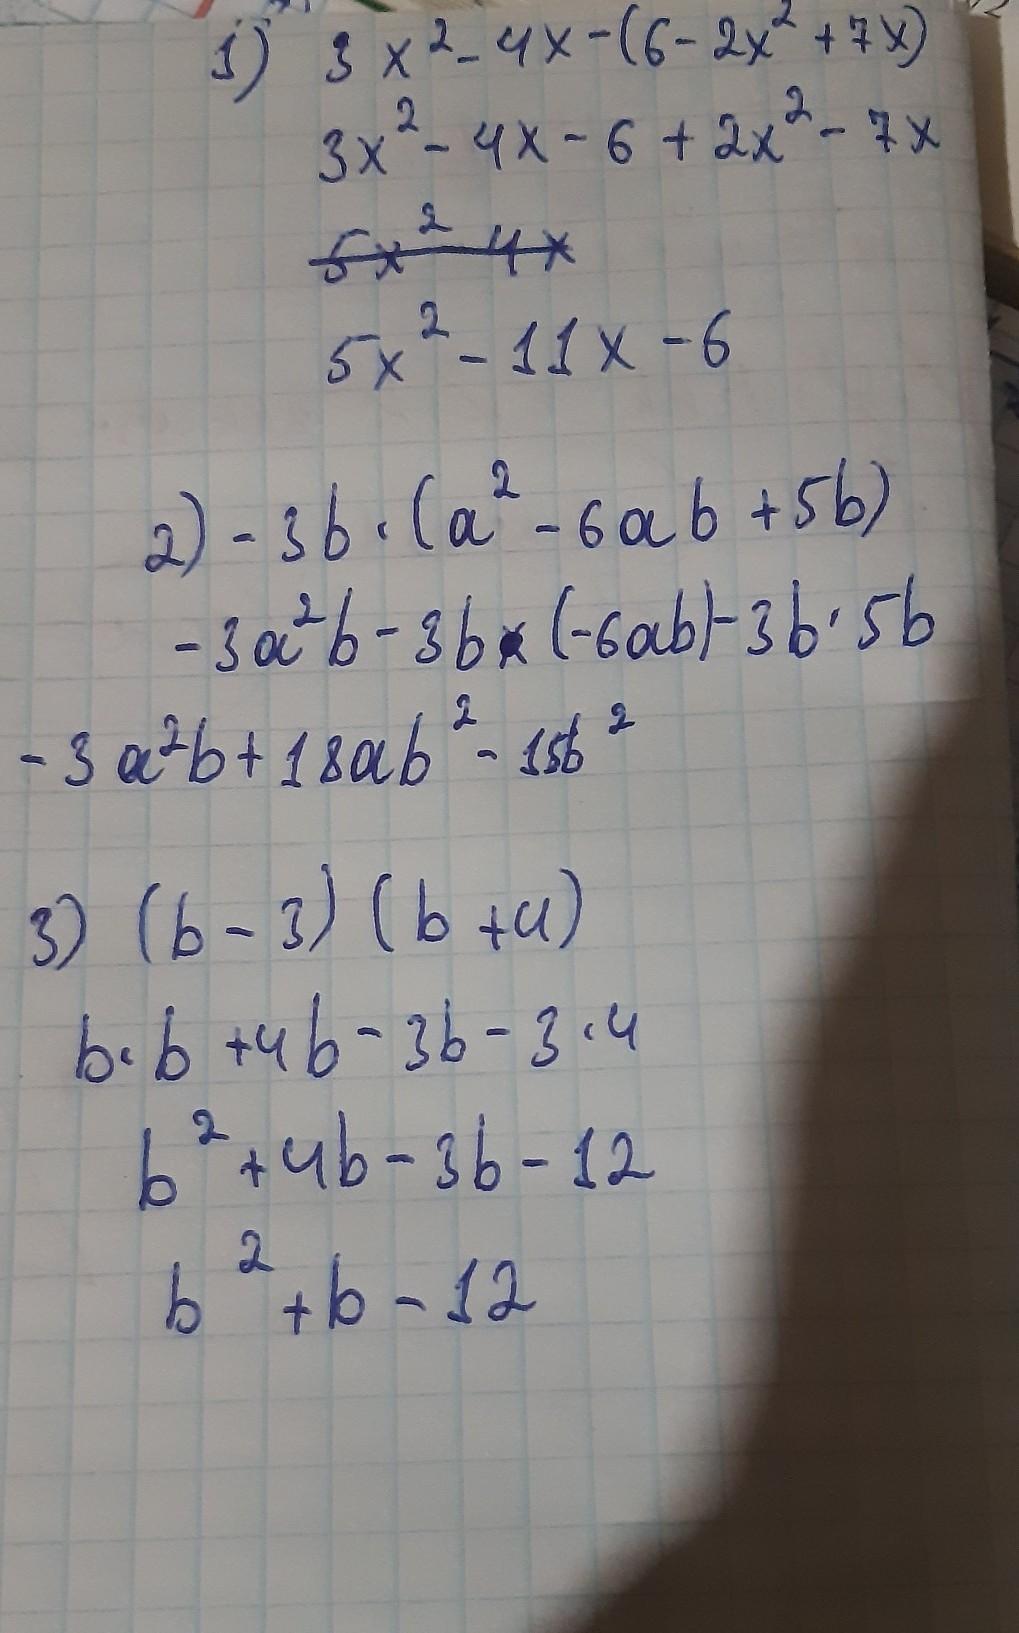 1) 3x² - 4x - (6 - 2x² + 7x)
3x² - 4x - 6 + 2x² - 7x
5x² 4x
5x² - 11x - 6
2) - 3b · (a² - 6ab + 5b)
- 3a²b - 3b × (-6ab) - 3b · 5b
- 3a²b + 18ab² - 15b²
3) (b - 3) (b + 4)
b · b + 4b - 3b - 3 · 4
b² + 4b - 3b - 12
b² + b - 12